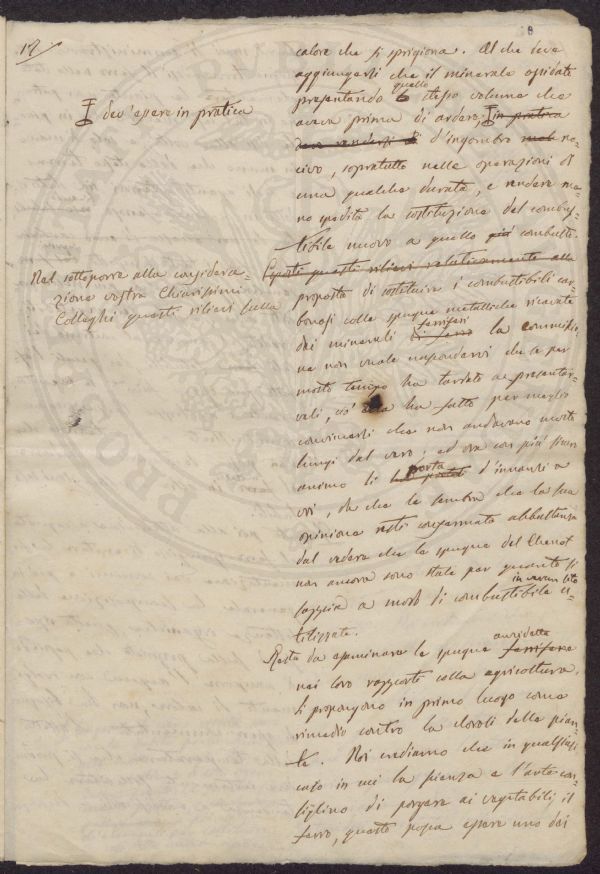 17
8
dev'essere in pratica
calore che si sprigiona. Al che deve
aggiungersi che il minerale ossidato
presentando quello stesso volume che
aveva prima di ardere, in pratica
deve rendersi d'ingombro no-
civo, sopratutto nelle operazioni di
una qualche durata, e rendere me-
no spedita la sostituzione del combus-
tibile nuovo a quello più combusto.
Nel sottoporre alla considera-
zione vostra Chiarissimi
Colleghi questi rilievi sulla
Esposti questi rilievi relativamente alla
proposta di sostituire i combustibili car-
bonosi colle spugne metalliche ricavate
dai minerali di ferro ferriferi la commissio-
ne non vuole nascondervi che se per
molto tempo ha tardato a presentar-
veli, ciò ha fatto per meglio
convincersi che non andavano molto
lungi dal vero; ed ora con più sicuro
animo li porta d'innanzi a
voi, da che le sembra che la sua
opinione resti confermata abbastanza
dal vedere che le spugne del Chenot
non ancora sono state per quanto si
sappia a modo di combustibile in verun sito u-
tilizzate.
Resta da esaminare le spugne anzidette ferrifere
nei loro rapporti colla agricoltura.
Si propongono in primo luogo come
rimedio contro la clorosi delle pian-
te. Noi crediamo che in qualsiasi
caso in cui la scienza e l'arte con-
siglino di porgere ai vegetabili il
ferro, questo possa essere uno dei